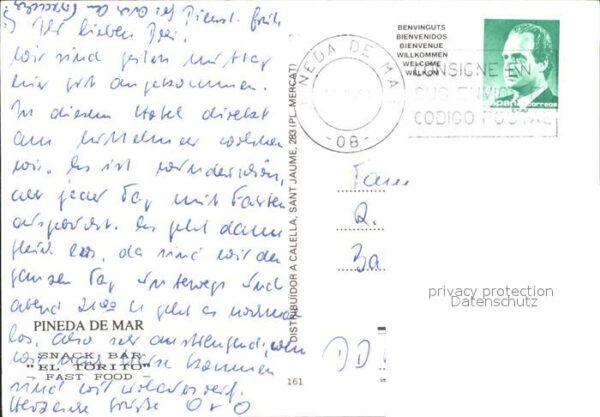 Ihr lieben Drei.
wir sind gestern mittag
hier gut angekommen.
In diesem Hotel direkt
am Mittelmeer wohnen
wir. Es ist wunderschön,
aber jeder Tag mit Fasten
ausgebucht. Es geht dann
gleich los, da sind wir den
ganzen Tag unterwegs und
abend 21.00 U geht es
los, also sehr anstrengend, wenn
wir nach Hause kommen
sind wir
Herzliche Grüße O + O
PINEDA DE MAR
SNACK BAR
"EL TORITO"
- FAST FOOD -
161
DISTRIBUIDOR A CALELLA, SANT JAUME, 283 (PL. MERCAT)
BENVINGUTS
BIENVENIDOS
BIENVENUE
WILLKOMMEN
WELCOME
WELKOM
PINEDA DE MAR
-08-
CONSIGNE EN
SUS ENVIOS
CODIGO POSTAL
correos
Fam
R.
Ba
DD
privacy protection
Datenschutz